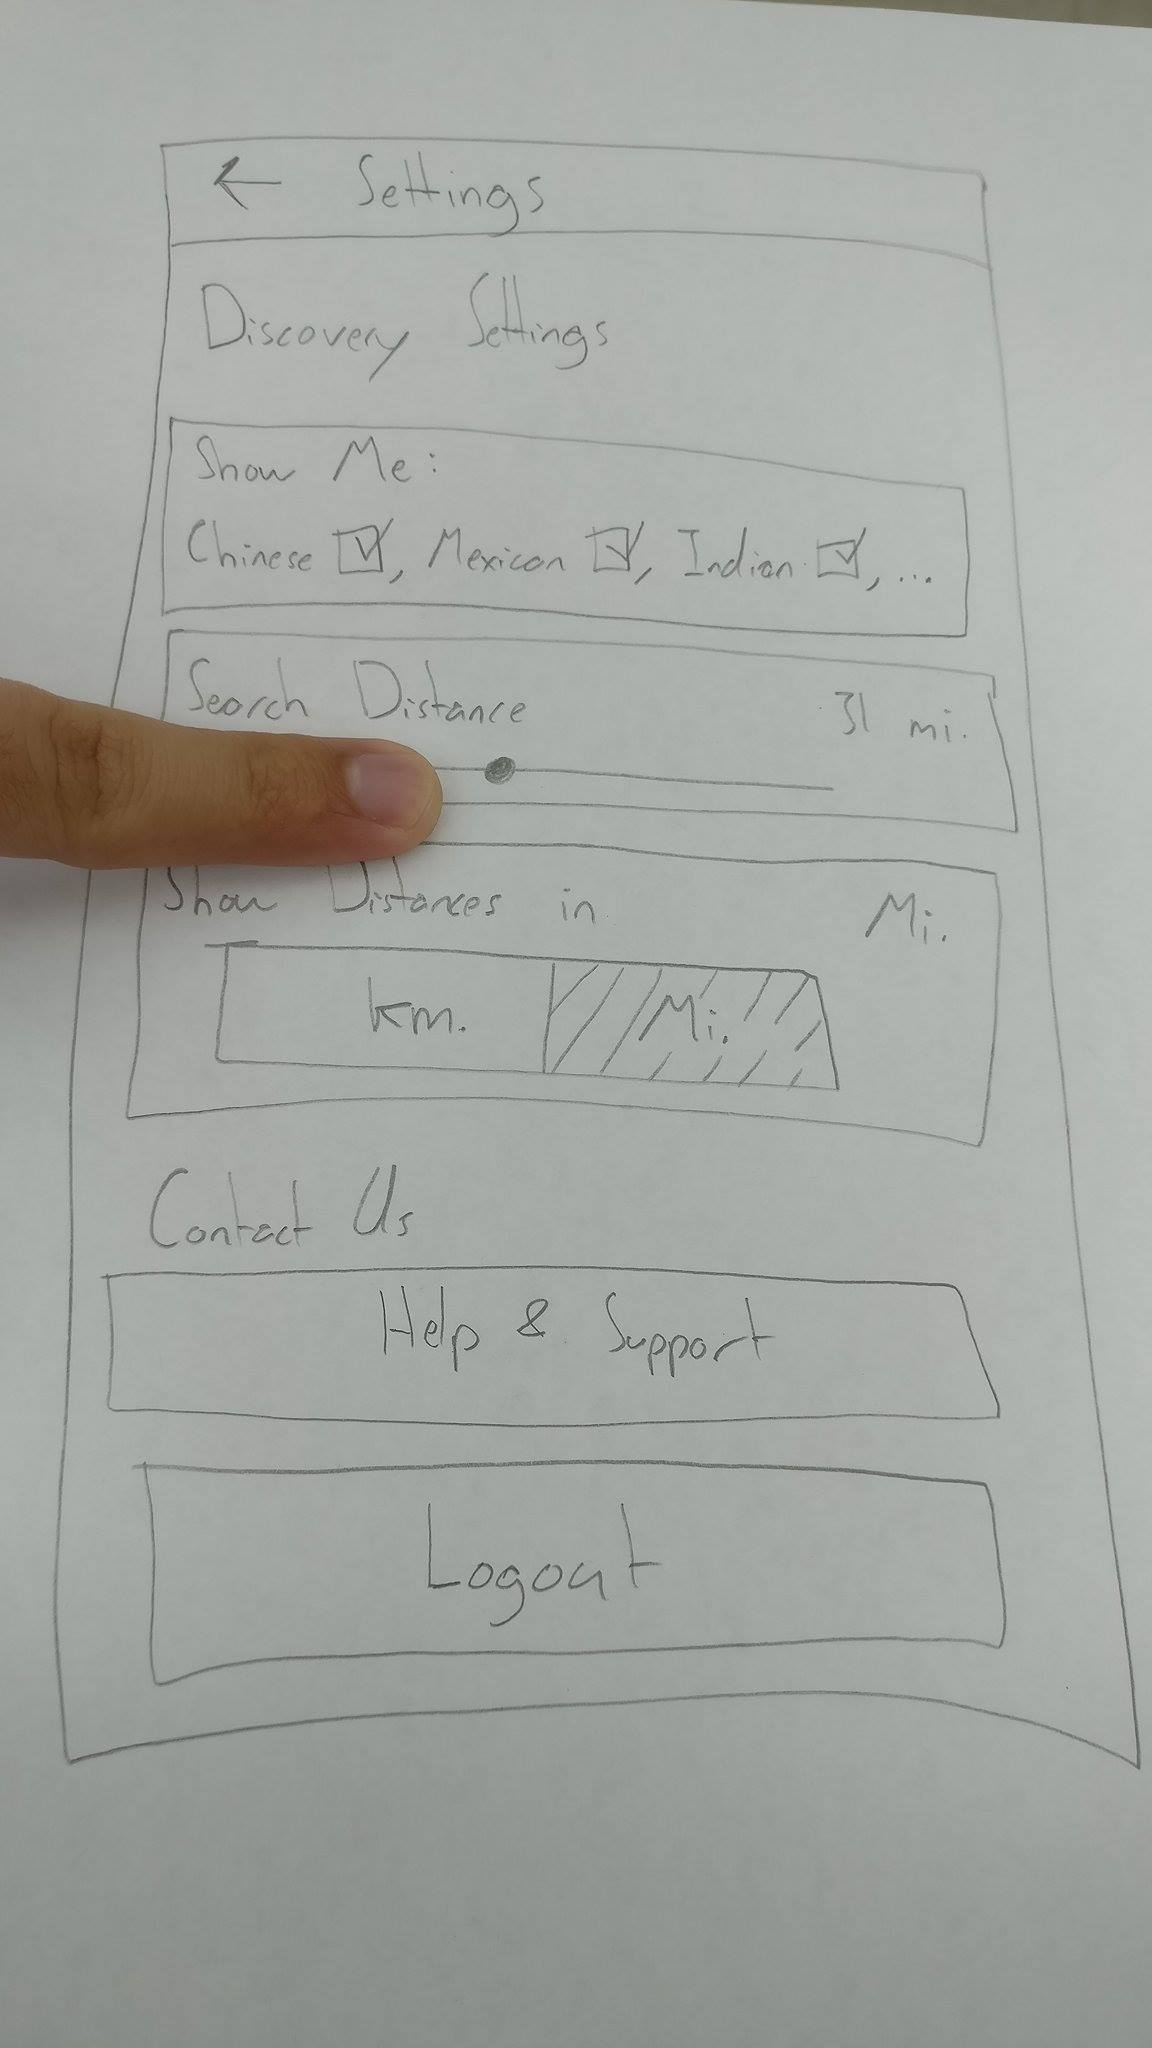 ← Settings
Discovery Settings
Show Me:
Chinese ☑, Mexican ☑, Indian ☑, ...
Search Distance 31 mi.
Show Distances in Mi.
km. Mi.
Contact Us
Help & Support
Logout